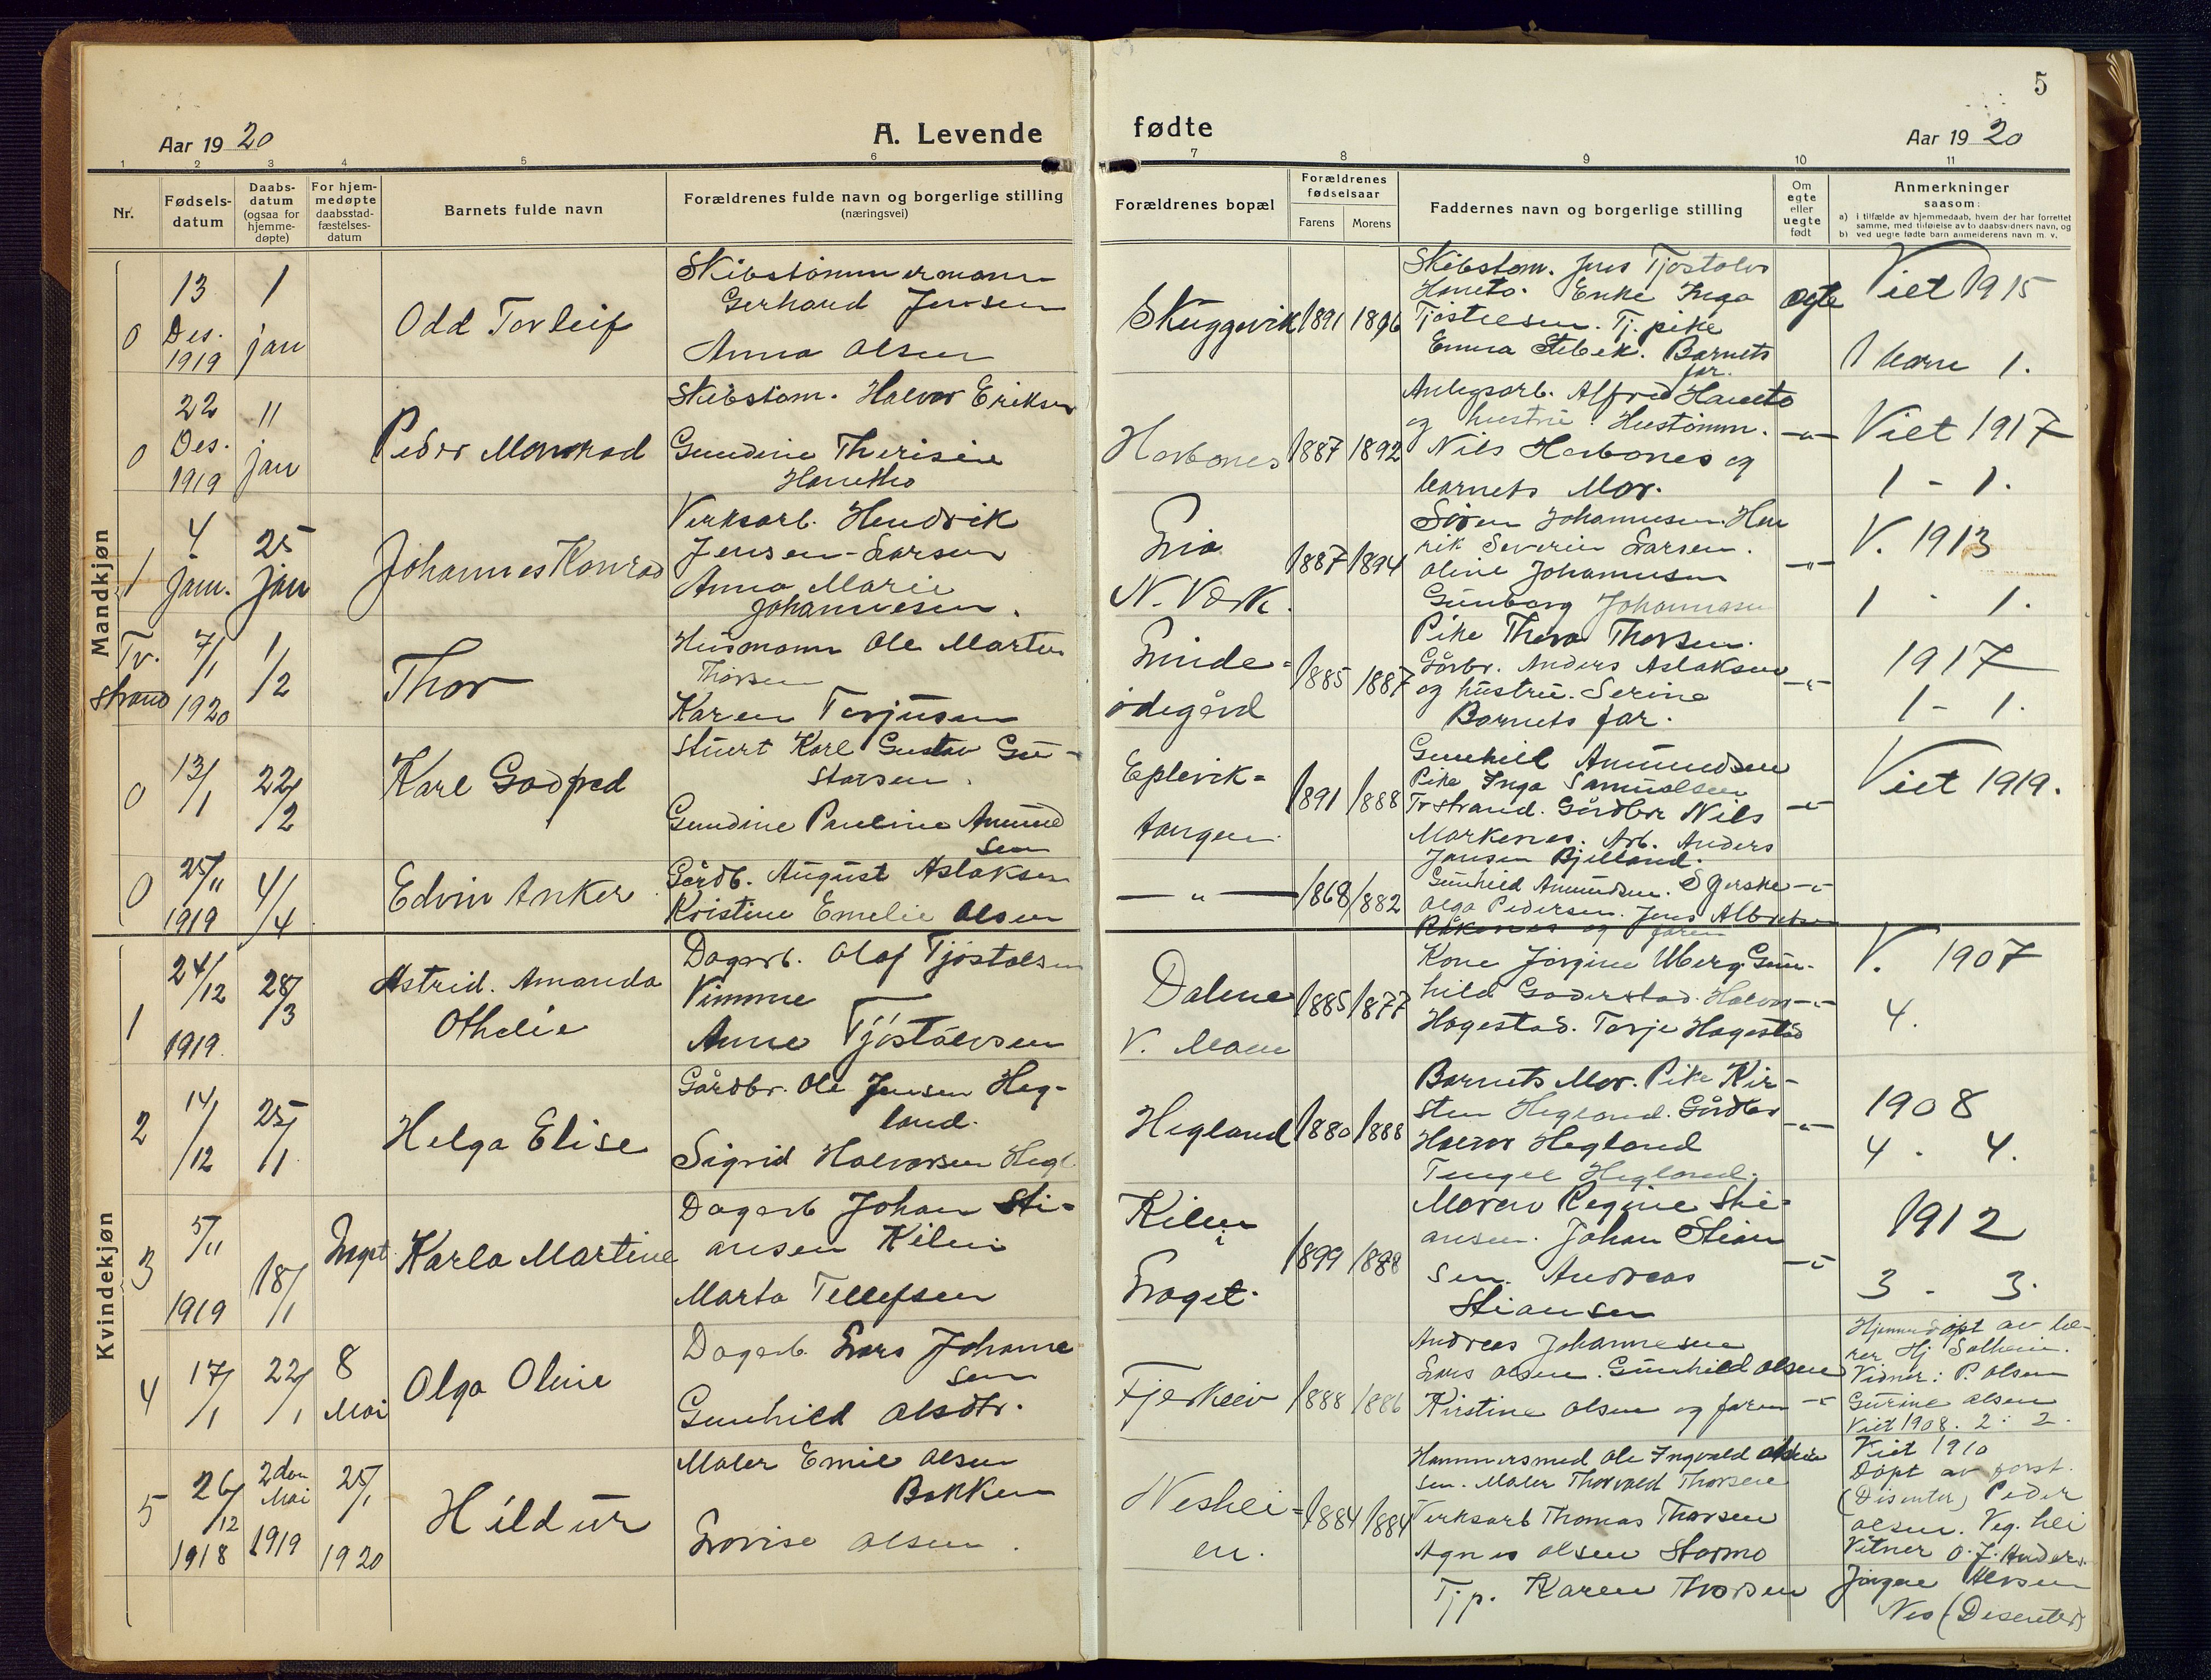 5
Aar 1920
A. Levende
fødte
Aar 1920
1 2 3 4 5 6 7 8 9 10 11
Nr.
Fødsels-
datum
Daabs-
datum
(ogsaa for
hjemme-
døpte)
For hjem-
medøpte
daabsstad-
fæstelses-
datum
Barnets fulde navn
Forældrenes fulde navn og borgerlige stilling
(næringsvei)
Forældrenes bopæl
Forældrenes
fødselsaar
Farens Morens
Faddernes navn og borgerlige stilling
Om
egte
eller
uegte
født
Anmerkninger
saasom:
a) i tilfælde av hjemmedaab, hvem der har forrettet
samme, med tilføielse av to daabsvidners navn, og
b) ved uegte fødte barn anmelderens navn m. v.
Mandkjøn
0
13
Des.
1919
1
jan
Odd Torleif
Skibstømmermann
Gerhard Jensen
Anna Olsen
Skuggevik
1891 1896
Skibstøm. Jens Tjøstolvs
Haneto. Enke Inga
Tjøstelsen. Tj. pike
Emma Stebek. Barnets
far.
egte
Viet 1915
1 barn 1.
0
22
Des.
1919
11
jan
Peder Monrad
Skibstøm. Halvor Eriksen
Gundine Therisie
Hanetho
Harbones
1887 1892
Anlegsarb. Alfred Haneto
og hustru. Hustømm.
Nils Harbones og
barnets Mor.
-"-
Viet 1917
1 - 1.
1
4
Jan.
25
Jan
Johannes Konrad
Verksarb. Hendrik
Jensen-Larsen
Anna Marie
Johannesen.
Lia
N. Verk.
1887 1894
Søren Johannesen. Hen
rik Severin Larsen.
Oline Johannesen
Gunborg Johannesen
-"-
V. 1913
1 - 1.
Tv.
strand
7/1
1920
1/2
Thor
Husmann Ole Martin
Thorsen
Karen Terjusen
Linde-
ødegård
1885 1887
Pike Thora Thorsen.
Gårbr. Anders Aslaksen
og hustru. Serine
Barnets far.
-"-
1917
1 - 1.
0
13/1
22/2
Karl Godfred
Stuert Karl Gustav Gu-
stavsen.
Gundine Pauline Amund
sen
Eplevik-
tangen.
1891 1888
Gunhild Amundsen
Pike Inga Samuelsen
Tvstrand. Gårdbr Nils
Markenes. Arb. Anders
Jansen Bjelland.
-"-
Viet 1919.
0
25/11
1919
4/4
Edvin Anker
Gårdb. August Aslaksen
Kristine Emelie Olsen
— " —
1868 1882
Gunhild Amundsen.
Olga Pedersen. Jens Albretsen
og faren
-"-
Kvindekjøn
1
24/12
1919
28/3
Astrid. Amanda
Othelie
Dagarb. Olaf Tjøstolsen
Vimme
Anne Tjøstolvsen
Dalene
V. Moen
1885 1877
Kone Jørgine Uberg. Gun-
hild Goderstad. Halvor
Hagestad. Terje Hagestad
-"-
V. 1907
4.
2
14/12
25/1
Helga Elise
Gårdbr. Ole Jensen Heg-
land.
Sigrid Halvorsen Hegl
Hegland
1880 1888
Barnets Mor. Pike Kir-
sten Hegland. Gårdbr
Halvor Hegland
Tengel Hegland.
-"-
1908
4 - 4.
3
5/11
1919
18/1
Karla Martine
Dagarb Johan Sti-
ansen Kilen
Marta Tellefsen
Kilen
i
Laget.
1899 1888
Moren Regine Sti-
ansen. Johan Stian
sen. Andreas
Stiansen
-"-
1912
3 - 3.
4
17/1
22/1
8
Mai
Olga Oline
Dagarb Lars Johanne
sen
Gunhild Olsdtr.
Fjerkleiv
1888 1886
Andreas Johannesen
Lars Olsen. Gunhild Olsen
Kirstine Olsen og faren
-"-
Hjemmedøpt av læ-
rer Hj Solheim.
Vidner: P. Olsen
Gurine Olsen
Viet 1908. 2 : 2.
5
26/12
1918
2den
Mai
1919
25/1
1920
Hildur
Maler Emil Olsen
Bakken
Lovise Olsen.
Neshei-
en.
1884 1884
Hammersmed Ole Ingvald
sen. Maler Thorvald Thorsen
Verksarb Thomas Thorsen
Agnes Olsen Stormo
Tjp. Karen Thorsen
Viet 1910
Døpt av forst.
(Disenter) Peder
Olsen. Veg. hei
Vitner O. J. Anders.
Jørgen
Nes (Disenter)